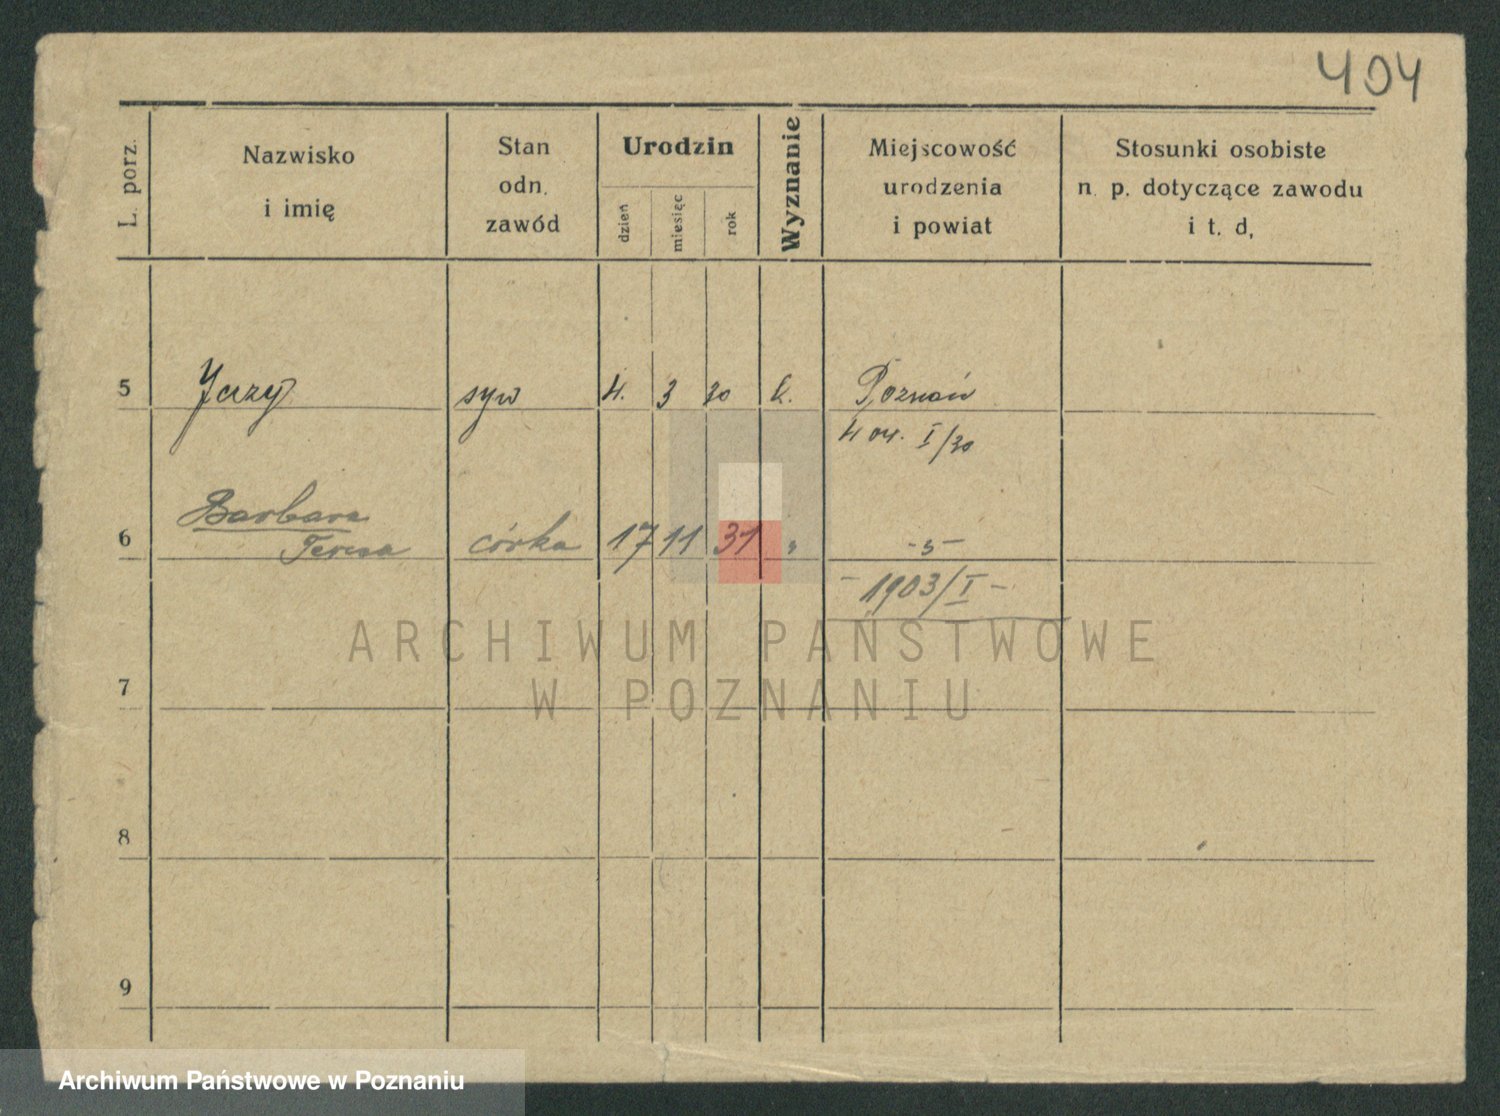 404
L. porz.
Nazwisko
i imię
Stan
odn.
zawód
Urodzin
dzień
miesięc
rok
Wyznanie
Miejscowość
urodzenia
i powiat
Stosunki osobiste
n. p. dotyczące zawodu
i t. d,
5 Jerzy syn 4. 3 30 k. Poznań
404. I/30
Barbara
6 Teresa córka 17 11 31 " -"-
- 1903/I -
7
8
9
ARCHIWUM PAŃSTWOWE
W POZNANIU
Archiwum Państwowe w Poznaniu